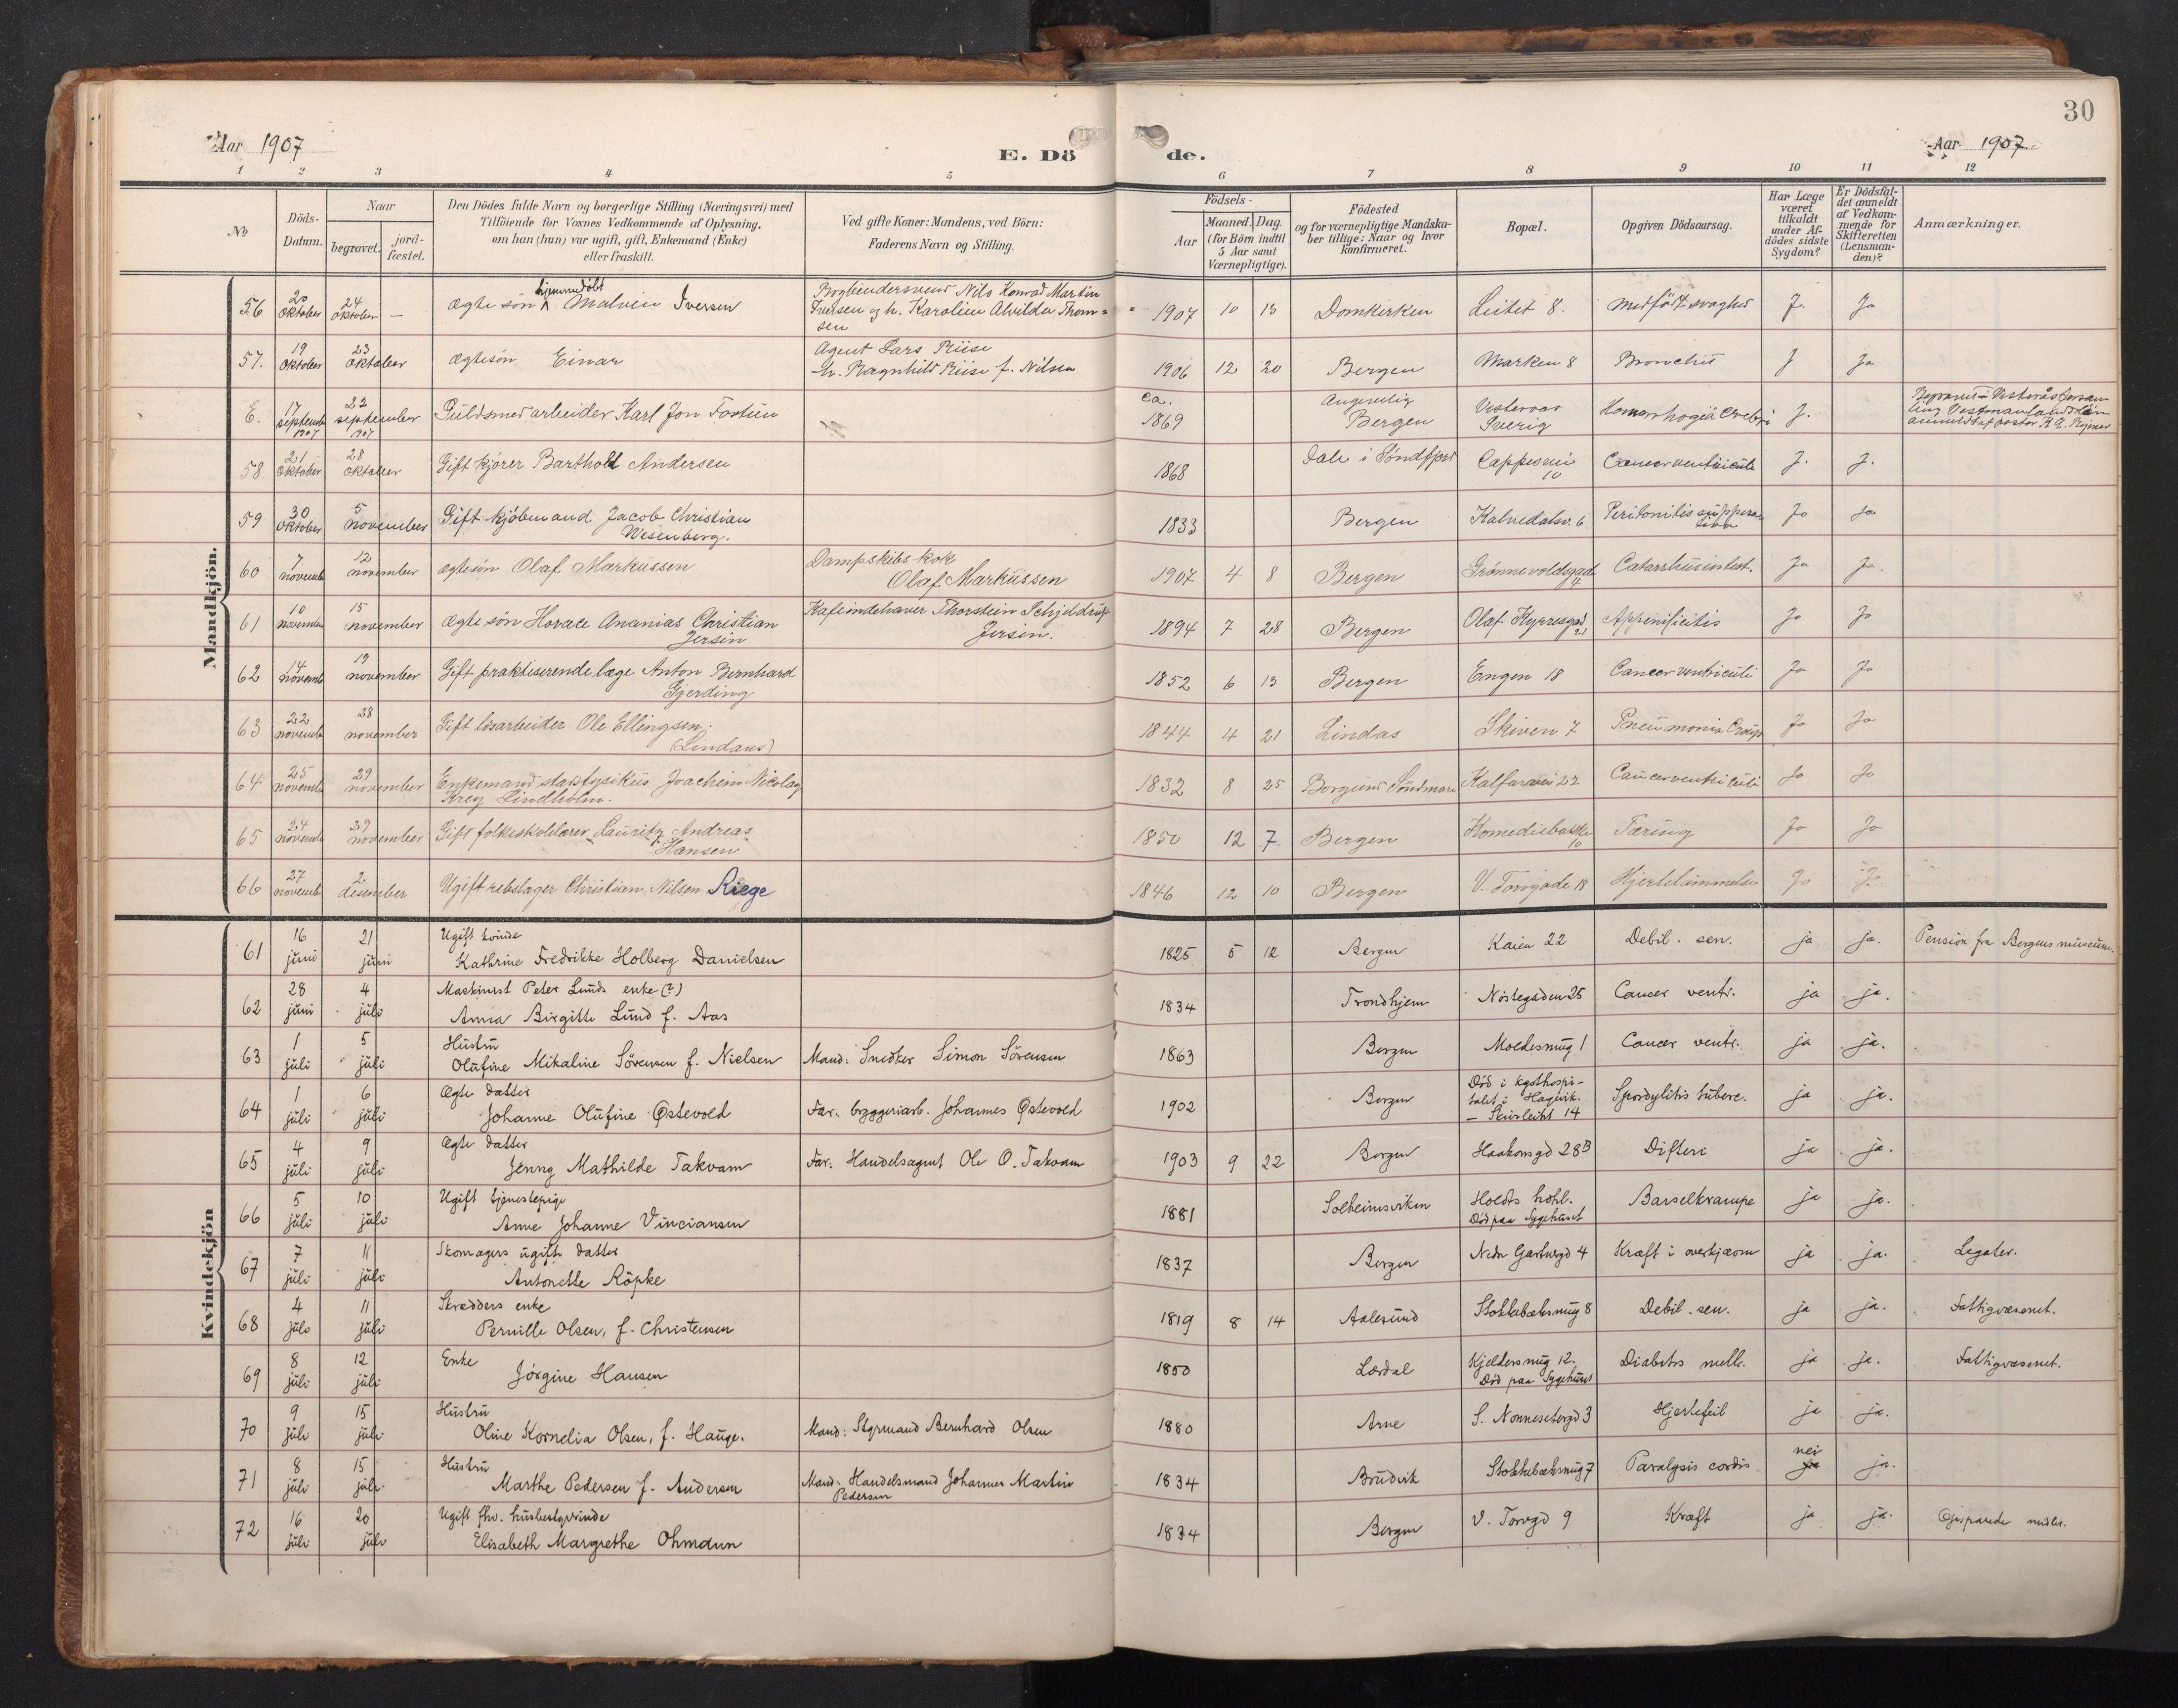 30
Aar 1907
E. Dö de.
Aar 1907
1 2 3 4 5 6 7 8 9 10 11 12
No.
Döds-Datum.
Naar
begravet.
jordfæstet.
Den Dödes fulde Navn og borgerlige Stilling (Næringsvei) med
Tilföiende for Voxnes Vedkommende af Oplysning,
om han (hun) var ugift, gift, Enkemand (Enke)
eller fraskilt.
Ved gifte Koner: Mandens, ved Börn:
Faderens Navn og Stilling.
Födsels-
Aar
Maaned. Dag.
(for Börn indtil
5 Aar samt
Værnepligtige).
Födested
og for værnepligtige Mandskaber tillige: Naar og hvor
konfirmeret.
Bopæl.
Opgiven Dödsaarsag.
Har Læge
været
tilkaldt
under Afdödes sidste
Sygdom?
Er Dödsfaldet anmeldt
af Vedkommende for
Skifteretten
(Lensmanden)?
Anmærkninger.
Mandkjön.
56 20 oktober 24 oktober — ægte søn hjemmedöbt Malvin Iversen Bogbindersvend Nils Konrad Martin Iversen og h. Karoline Alvilda Thomsen 1907 10 13 Domkirken Leitet 8. medfödt svaghed J. Ja
57. 19 oktober 23 oktober ægte søn Einar Agent Lars Riise h. Ragnhild Riise f. Nilsen 1906 12 20 Bergen Marken 8 Bronchit J Ja
E. 17 septemb 1907 22 september 1907 Guldsmedarbeider Karl Jon Fostun ca. 1869 angivelig Bergen Vesteraas Sverig J.
58 21 oktober 28 oktober Gift kjører Barthold Andersen 1868 Dale i Søndfjord 10 Cancer ventriculi J. J.
59 30 oktober 5 november Gift kjøbmand Jacob Christian Wesenberg. 1833 Bergen Kalvedalsv. 6 Peritonitis suppurativa Ja Ja
60 7 novemb 12 november ægte søn Olaf Markussen Dampskibs kok Olaf Markussen 1907 4 8 Bergen Grønnevoldsgade Catarrhus intest. Ja Ja.
61 10 novemb 15 november ægte søn Horace Ananias Christian Jersin Kafeindehaver Thorstein Schjelderup Jersin. 1894 7 28 Bergen Olaf Kyrresgd 21 Appenificitis Ja Ja
62 14 novemb 19 november Gift praktiserende læge Anton Bernhard Gjerding 1852 6 13 Bergen Engen 18 Cancer ventriculi Ja Ja
63 22 novemb 28 november Gift løsarbeider Ole Ellingsen. (Lindaas) 1844 4 21 Lindas Skiven 7 Pneumonia Croup Ja Ja
64 25 novemb 29 november Enkemand stadsfysikus Joachim Nikolay Krey Lindholm. 1832 8 25 Borgund Søndmøre Kalfarvei 22 Cancer ventriculi Ja Ja
65 24 novemb 29 november Gift folkeskolelærer Lauritz Andreas Hansen 1850 12 7 Bergen Komediebakke 10 Tæring Ja Ja
66 27 novemb 2 desember Ugift rebslager Christian Nilsen Riege 1846 12 10 Bergen V. Torvgade 18 Hjertelammelse Ja Ja
Kvindekjön
61 16 juni 21 juni Ugift kvinde Kathrine Fredrikke Holberg Danielsen 1825 5 12 Bergen Kaien 22 Debil. sen. ja ja. Pension fra Bergens museum.
62 28 juni 4 juli Maskinist Peter Lunds enke (?) Anna Birgitte Lund f. Aas 1834 Trondhjem Nøstegaden 25 Cancer ventr. ja ja.
63 1 juli 5 juli Hustru Olufine Mikaline Sörensen f. Nielsen Mand: Snedker Simon Sörensen 1863 Bergen Moldesmug 1 Cancer ventr. ja ja.
64 1 juli 6 juli Ægte datter Johanne Olufine Østevold Far. bryggeriarb. Johannes Østevold 1902 Bergen Död i kysthospitalet i Hagvik. — Skivebakk 14 Spondylitis tuberc. ja ja.
65 4 juli 9 juli Ægte datter Jenny Mathilde Takvam Far. Handelsagent Ole O. Takvam 1903 9 22 Bergen Haakonsgd 28B Difteri ja ja.
66 5 juli 10 juli Ugift tjenestepige Anne Johanne Vinciansen 1881 Solheimsviken Holdts hohl. Död paa Sygehuset Barselkrampe ja ja.
67 7 juli 11 juli Skomagers ugifte datter Antonette Röpke 1837 Bergen Nedr Garturgd 4 Kræft i overkjæven ja ja. Legater.
68 4 juli 11 juli Skrædders enke Pernille Olsen, f. Christensen 1819 8 14 Aalesund Stokkebæksmug 8 Debil. sen. ja ja. Fattigvæsenet.
69 8 juli 12 juli Enke Jörgine Hansen 1850 Lærdal Kjeldersmug 12. Död paa Sygehuset Diabetes mell. ja ja. Fattigvæsenet.
70 9 juli 15 juli Hustru Oline Kornelia Olsen, f. Hauge. Mand: Styrmand Bernhard Olsen 1880 Arne S. Nonnesetergd 3 Hjertefeil ja ja.
71 8 juli 15 juli Hustru Marthe Pedersen f. Andersen Mand: Handelsmand Johannes Martin Pedersen 1834 Brudvik Stokkebæksmug 7 Paralysis cordis nei ja ja.
72 16 juli 20 juli Ugift fhv. husbestyrerinde Elisabeth Margrethe Ohmdun 1834 Bergen V. Torvgd 9 Kræft ja ja. Opsparede midler.